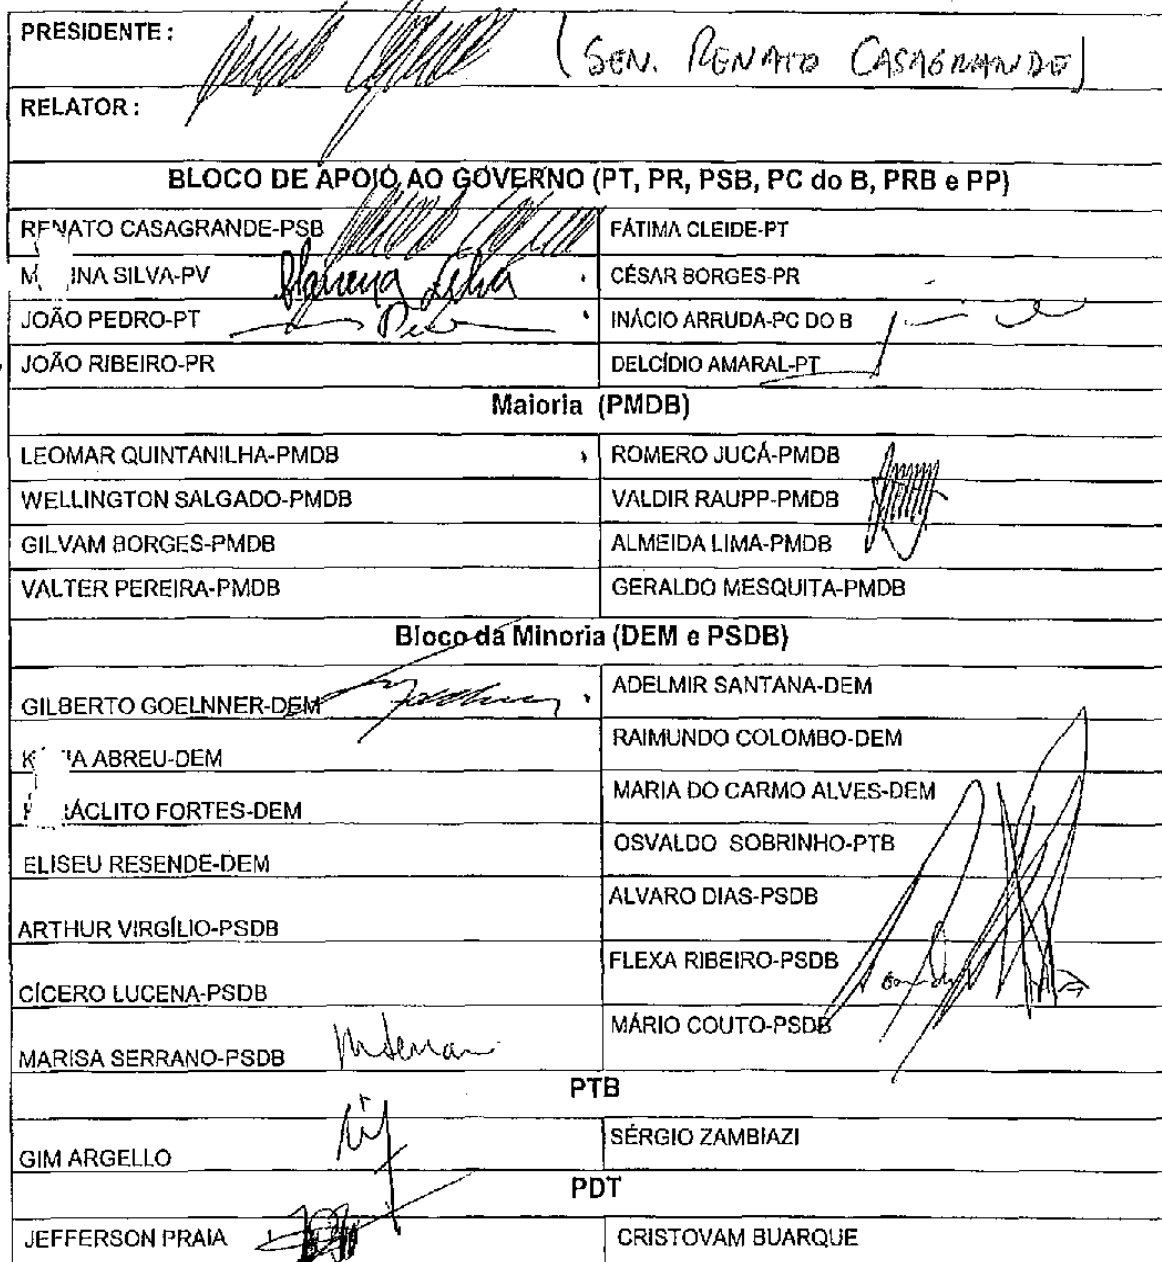 PRESIDENTE :
(SEN. RENATO CASAGRANDE)
RELATOR :
BLOCO DE APOIO AO GOVERNO (PT, PR, PSB, PC do B, PRB e PP)
RENATO CASAGRANDE-PSB
FÁTIMA CLEIDE-PT
M INA SILVA-PV Marina Silva
CÉSAR BORGES-PR
JOÃO PEDRO-PT
INÁCIO ARRUDA-PC DO B
JOÃO RIBEIRO-PR
DELCÍDIO AMARAL-PT
Maioria (PMDB)
LEOMAR QUINTANILHA-PMDB
ROMERO JUCÁ-PMDB
WELLINGTON SALGADO-PMDB
VALDIR RAUPP-PMDB
GILVAM BORGES-PMDB
ALMEIDA LIMA-PMDB
VALTER PEREIRA-PMDB
GERALDO MESQUITA-PMDB
Bloco da Minoria (DEM e PSDB)
GILBERTO GOELNNER-DEM
ADELMIR SANTANA-DEM
K IA ABREU-DEM
RAIMUNDO COLOMBO-DEM
ÁCLITO FORTES-DEM
MARIA DO CARMO ALVES-DEM
ELISEU RESENDE-DEM
OSVALDO SOBRINHO-PTB
ARTHUR VIRGÍLIO-PSDB
ALVARO DIAS-PSDB
CÍCERO LUCENA-PSDB
FLEXA RIBEIRO-PSDB
MARISA SERRANO-PSDB
MÁRIO COUTO-PSDB
PTB
GIM ARGELLO
SÉRGIO ZAMBIAZI
PDT
JEFFERSON PRAIA
CRISTOVAM BUARQUE